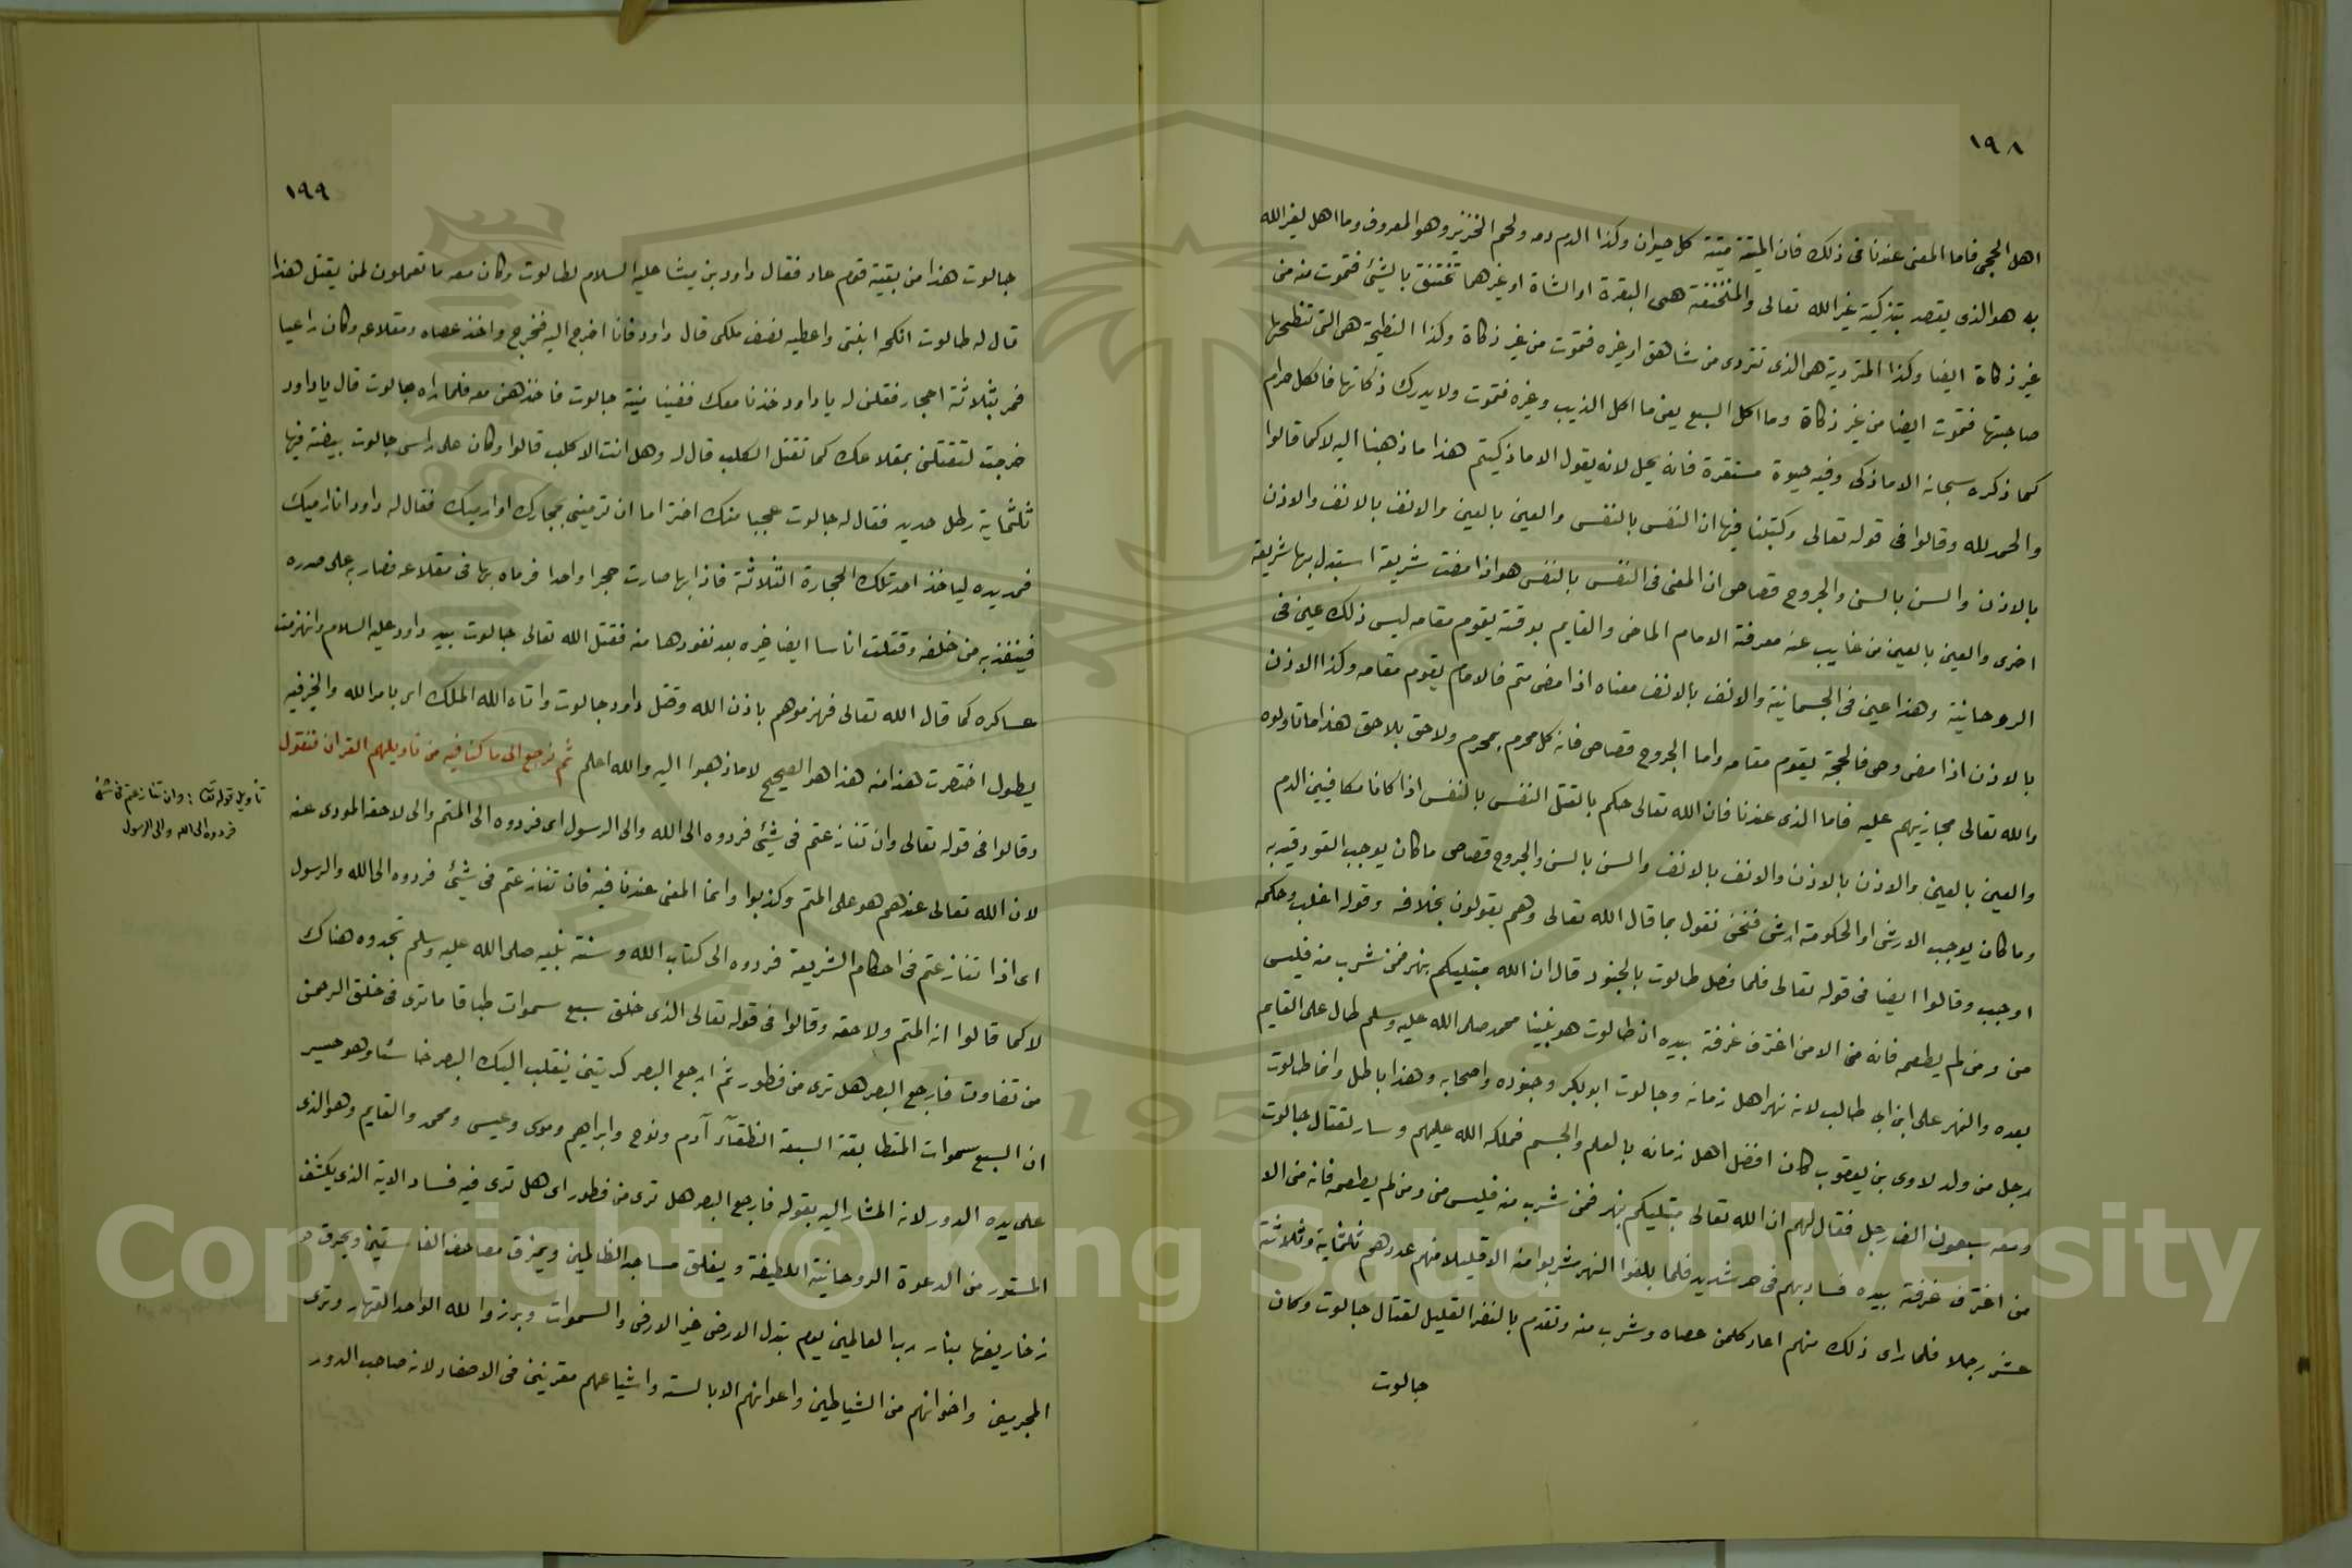 ١٩٨
اهل الحجى فاما المعنى عندنا فى ذلك فان الميتة ميتة كل حيوان وكذا الدم دمه ولحم الخنزير وهو المعروف وما اهل لغير الله
به هو الذى يقصد بتذكيته غير الله تعالى والمنخنقة هى البقرة او الشاة او غيرهما تختنق بالشئ فتموت منه من
غير ذكاة ايضا وكذا المتردية هى الذى تتردى من شاهق او غيره فتموت من غير ذكاة وكذا النطيحة هى التى تنطحها
صاحبتها فتموت ايضا من غير ذكاة وما اكل السبع يعنى ما اكل الذيب وغيره فتموت ولا يدرك ذكاتها فالكل حرام
كما ذكره سبحانه الا ما ذكى وفيه حيوة مستقرة فانه يحل لانه يقول الا ما ذكيتم هذا ما ذهبنا اليه لا كما قالوا
والحمد لله وقالوا فى قوله تعالى وكتبنا فيها ان النفس بالنفس والعين بالعين والانف بالانف والاذن
بالاذن والسن بالسن والجروح قصاص ان المعنى فى النفس بالنفس هو اذا مضت شريعة استبدل بها شريعة
اخرى والعين بالعين من غايب عنه معرفة الامام الماضى والقايم بوقته يقوم مقامه ليس ذلك عين فى
الروحانية وهذا عين فى الجسمانية والانف بالانف معناه اذا مضى متم فالامام يقوم مقامه وكذا الاذن
بالاذن اذا مضى وصى فالحجة يقوم مقامه واما الجروح قصاص فانه كل محرم بمحرم ولاحق بلاحق هذا ما تاولوه
والله تعالى مجازيهم عليه فاما الذى عندنا فان الله تعالى حكم بالقتل النفس بالنفس اذا كانا مكافيين الدم
والعين بالعين والاذن بالاذن والانف بالانف والسن بالسن والجروح قصاص ما كان يوجب القود قيد به
وما كان يوجب الارش او الحكومة ارش فنحن نقول بما قال الله تعالى وهم يقولون بخلافه وقوله اغلب وحكمه
اوجب وقالوا ايضا فى قوله تعالى فلما فصل طالوت بالجنود قال ان الله مبتليكم بنهر فمن شرب منه فليس
منى ومن لم يطعمه فانه منى الا من اغترف غرفة بيده ان طالوت هو نبينا محمد صلى الله عليه وسلم طال على القايم
بعده والنهر على ابن ابى طالب لانه نهر اهل زمانه وجالوت ابو بكر وجنوده واصحابه وهذا باطل وانما طالوت
رجل من ولد لاوى بن يعقوب كان افضل اهل زمانه بالعلم والجسم فملكه الله عليهم وسار لقتال جالوت
ومعه سبعون الف رجل فقال لهم ان الله تعالى مبتليكم بنهر فمن شرب منه فليس منى ومن لم يطعمه فانه منى الا
من اغترف غرفة بيده فسار بهم فى حر شديد فلما بلغوا النهر شربوا منه الا قليلا منهم عددهم ثلثماية وثلاثة
عشر رجلا فلما راى ذلك منهم اعاد كلمن عصاه وشرب منه وتقدم بالنفر القليل لقتال جالوت وكان
جالوت
١٩٩
جالوت هذا من بقية قوم عاد فقال داود بن ميشا عليه السلام لطالوت وكان معه ما تعملون لمن يقتل هذا
قال له طالوت انكحه ابنتى واعطيه نصف ملكى قال داود فانا اخرج اليه فخرج واخذ عصاه ومقلاعه وكان راعيا
فمر بثلاثة احجار فقلن له يا داود خذنا معك ففينا منية جالوت فاخذهن معه فلما راه جالوت قال يا داود
خرجت لتقتلنى بمقلاعك كما تقتل الكلب قال له وهل انت الا كلب قالوا وكان على راس جالوت بيضة فيها
ثلثماية رطل حديد فقال له جالوت عجبا منك اختر اما ان ترمينى بحجارك او ارميك فقال له داود انا ارميك
فمد يده لياخذ احد تلك الحجارة الثلاثة فاذا بها صارت حجرا واحدا فرماه بها فى مقلاعه فضار به على صدره
فينفذ به من خلفه وقتلت اناسا ايضا غيره بعد نفودها منه فقتل الله تعالى جالوت بيد داود عليه السلام وانهزمت
عساكره كما قال الله تعالى فهزموهم باذن الله وقتل داود جالوت واتاه الله الملك اى بامر الله والخبر فيه
يطول اختصرت هذا منه هذا هو الصحيح لا ما ذهبوا اليه والله اعلم ثم نرجع الى ما كنا فيه من تاويلهم القران فنقول
وقالوا فى قوله تعالى وان تنازعتم فى شئ فردوه الى الله والى الرسول اى فردوه الى المتم والى لاحقه المودى عنه
لان الله تعالى عندهم هو على المتم وكذبوا وانما المعنى عندنا فيه فان تنازعتم فى شئ فردوه الى الله والرسول
اى اذا تنازعتم فى احكام الشريعة فردوه الى كتاب الله وسنة نبيه صلى الله عليه وسلم تجدوه هناك
لا كما قالوا انه المتم ولاحقه وقالوا فى قوله تعالى الذى خلق سبع سموات طباقا ما ترى فى خلق الرحمن
من تفاوت فارجع البصر هل ترى من فطور ثم ارجع البصر كرتين ينقلب اليك البصر خاسئا وهو حسير
ان السبع سموات المتطابقة السبعة النطقآء آدم ونوح وابراهيم وموسى وعيسى ومحمد والقايم وهو الذى
على يده الدور لانه المشار اليه بقوله فارجع البصر هل ترى من فطور اى هل ترى فيه فساد الاية الذى يكشف
المستور من الدعوة الروحانية اللطيفة ويغلق مساجد الظالمين ويمزق مصاحف الفاسقين ويحرق
زخاريفها بنار رب العالمين يوم تبدل الارض غير الارض والسموات وبرزوا لله الواحد القهار وترى
المجرمين واخوانهم من الشياطين واعوانهم الابالسة واشياعهم مقرنين فى الاصفاد لانه صاحب الدور
تأويل قوله تعا: وان تنازعتم فى شئ
فردوه الى الله والى الرسول
Copyright © King Saud University
195